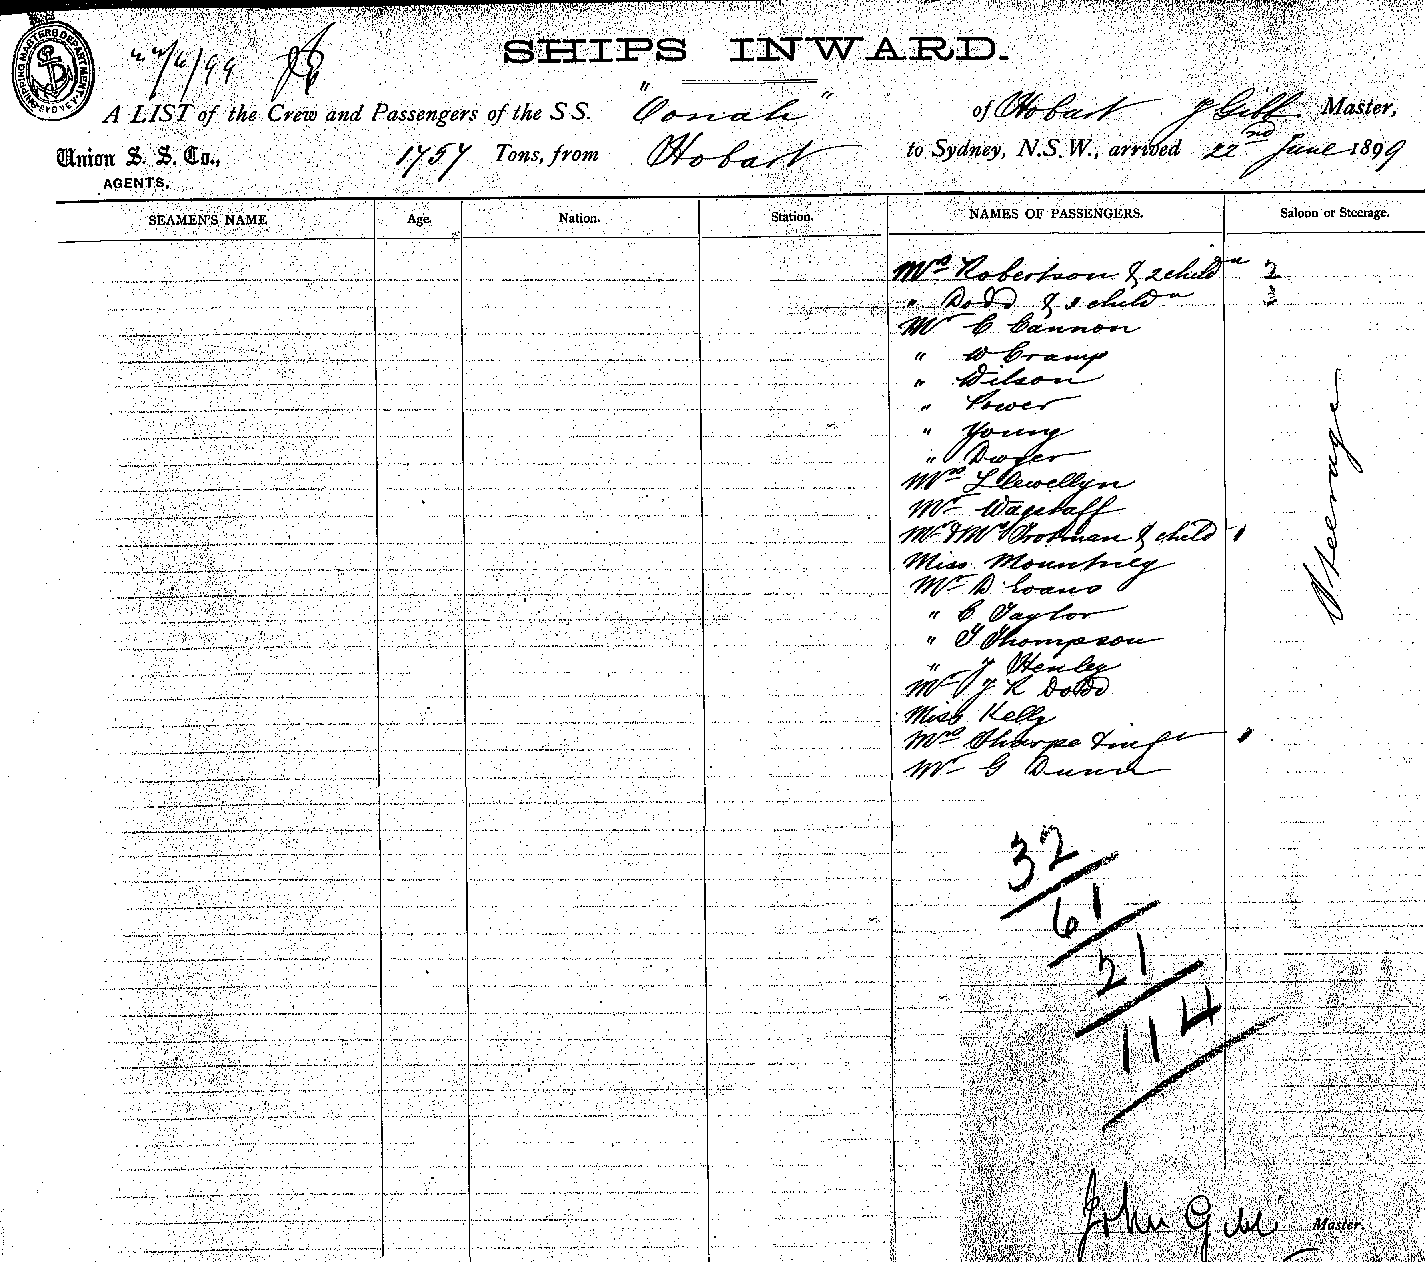 SHIPPING MASTERS DEPARTMENT SYDNEY
22/6/99
SHIPS INWARD.
A LIST of the Crew and Passengers of the S S. "Oonah" of Hobart J Gibb Master,
Union S. S. Co., 1757 Tons, from Hobart to Sydney, N.S.W., arrived 22nd June 1899
AGENTS,
SEAMEN'S NAME Age. Nation. Station. NAMES OF PASSENGERS. Saloon or Steerage.
Mrs Robertson & 2 childn 2
" Dodd & 3 childn 3
Mr C Cannon
" W Cramp
" Wilson
" Power
" Young
" Dwyer
Mrs Llewellyn
Mr Wagstaff
Mr & Mrs Trotman & child 1
Miss Mountney
Mr D Evans
" C Taylor
" T Thompson
" J Henley
Mr J R Dodd
Miss Kelly
Mrs Sharpe & inft 1
Mr G Dunn
Steerage
32
61
21
114
John Gibb Master.